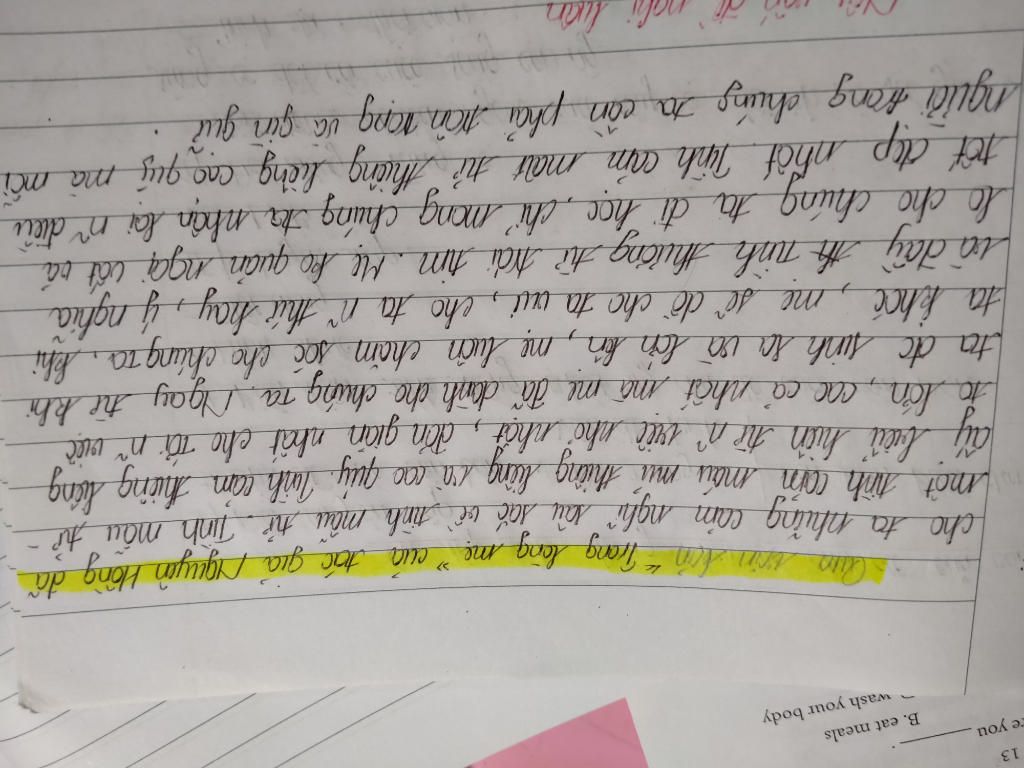 "Trong lòng mẹ" của tác giả Nguyên Hồng đã
cho ta những cảm nghĩ sâu sắc về tình mẫu tử. Tình mẫu tử -
một tình cạm máu mủ thiêng liêng và cao quý. Tình cạm thiêng liêng
ấy biểu hiện từ n~ việc nhỏ nhặt, đơn giản nhất cho tới n~ việc
to lớn, cao cả nhất mà mẹ đã dành cho chúng ta. Ngay từ khi
ta đc sinh ra và lớn lên, mẹ luôn chăm sóc cho chúng ta. Khi
ta khóc, mẹ sẽ dỗ cho ta vui, cho ta n~ thứ hay, ý nghĩa
và đầy tình thương từ trái tim. Mẹ ko quản ngại vất vả
lo cho chúng ta đi học, chỉ mong chúng ta nhận lại n~ điều
tốt đẹp nhất. Tình cảm mẫu tử thiêng liêng cao quý mà mỗi
người trong chúng ta cần phải trân trọng và gìn giữ.
vấn đề nghị luận
13
re you
B. eat meals
wash your body